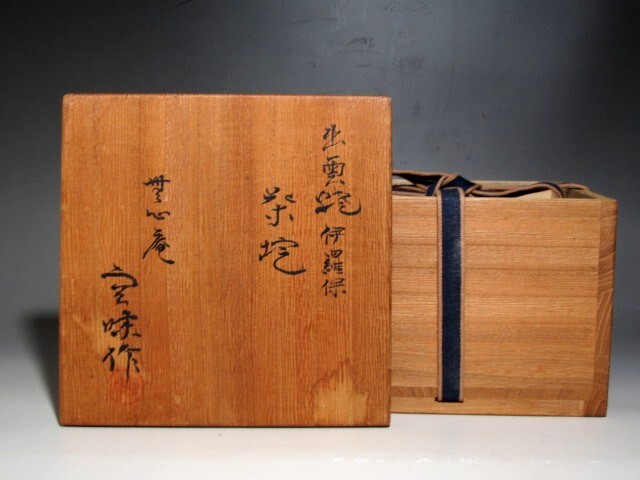 出雲焼伊羅保
茶垸
無心庵
空味作